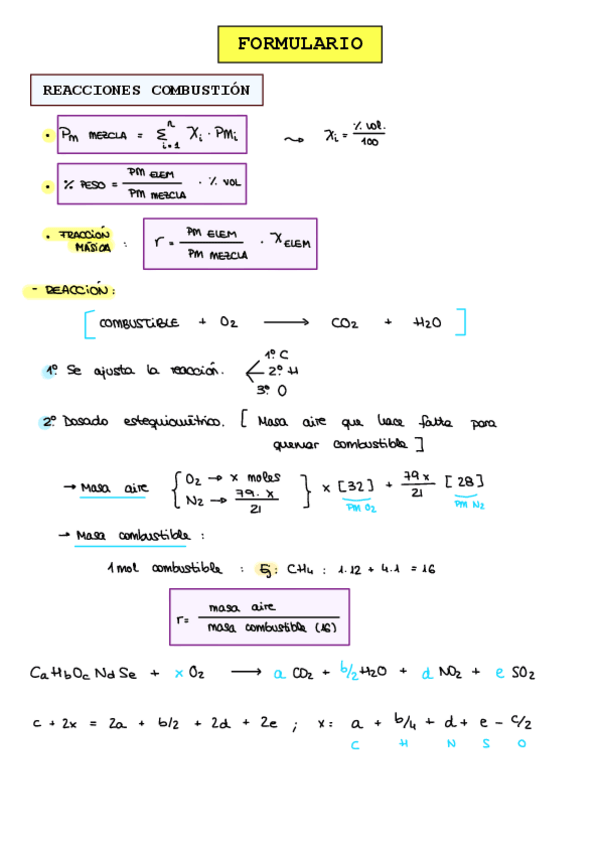 FORMULARIO
REACCIONES COMBUSTIÓN
• Pm MEZCLA = Σ i=1 n Xi · Pmi ⤳ Xi = % vol. / 100
• % PESO = PM ELEM / PM MEZCLA · % VOL
• FRACCIÓN MÁSICA : r = PM ELEM / PM MEZCLA · X ELEM
- REACCIÓN:
[ COMBUSTIBLE + O2 → CO2 + H2O ]
1º Se ajusta la reacción. 1º C
2º H
3º O
2º Dosado estequiométrico. [ Masa aire que hace falta para
quemar combustible ]
→ Masa aire { O2 → x moles
N2 → 79. x / 21 } x [32] + 79x / 21 [28]
PM O2 PM N2
→ Masa combustible :
1 mol combustible : Ej: CH4 : 1.12 + 4.1 = 16
r = masa aire / masa combustible (16)
CaHbOcNdSe + x O2 → a CO2 + b/2 H2O + d NO2 + e SO2
c + 2x = 2a + b/2 + 2d + 2e ; x: a + b/4 + d + e - c/2
C H N S O